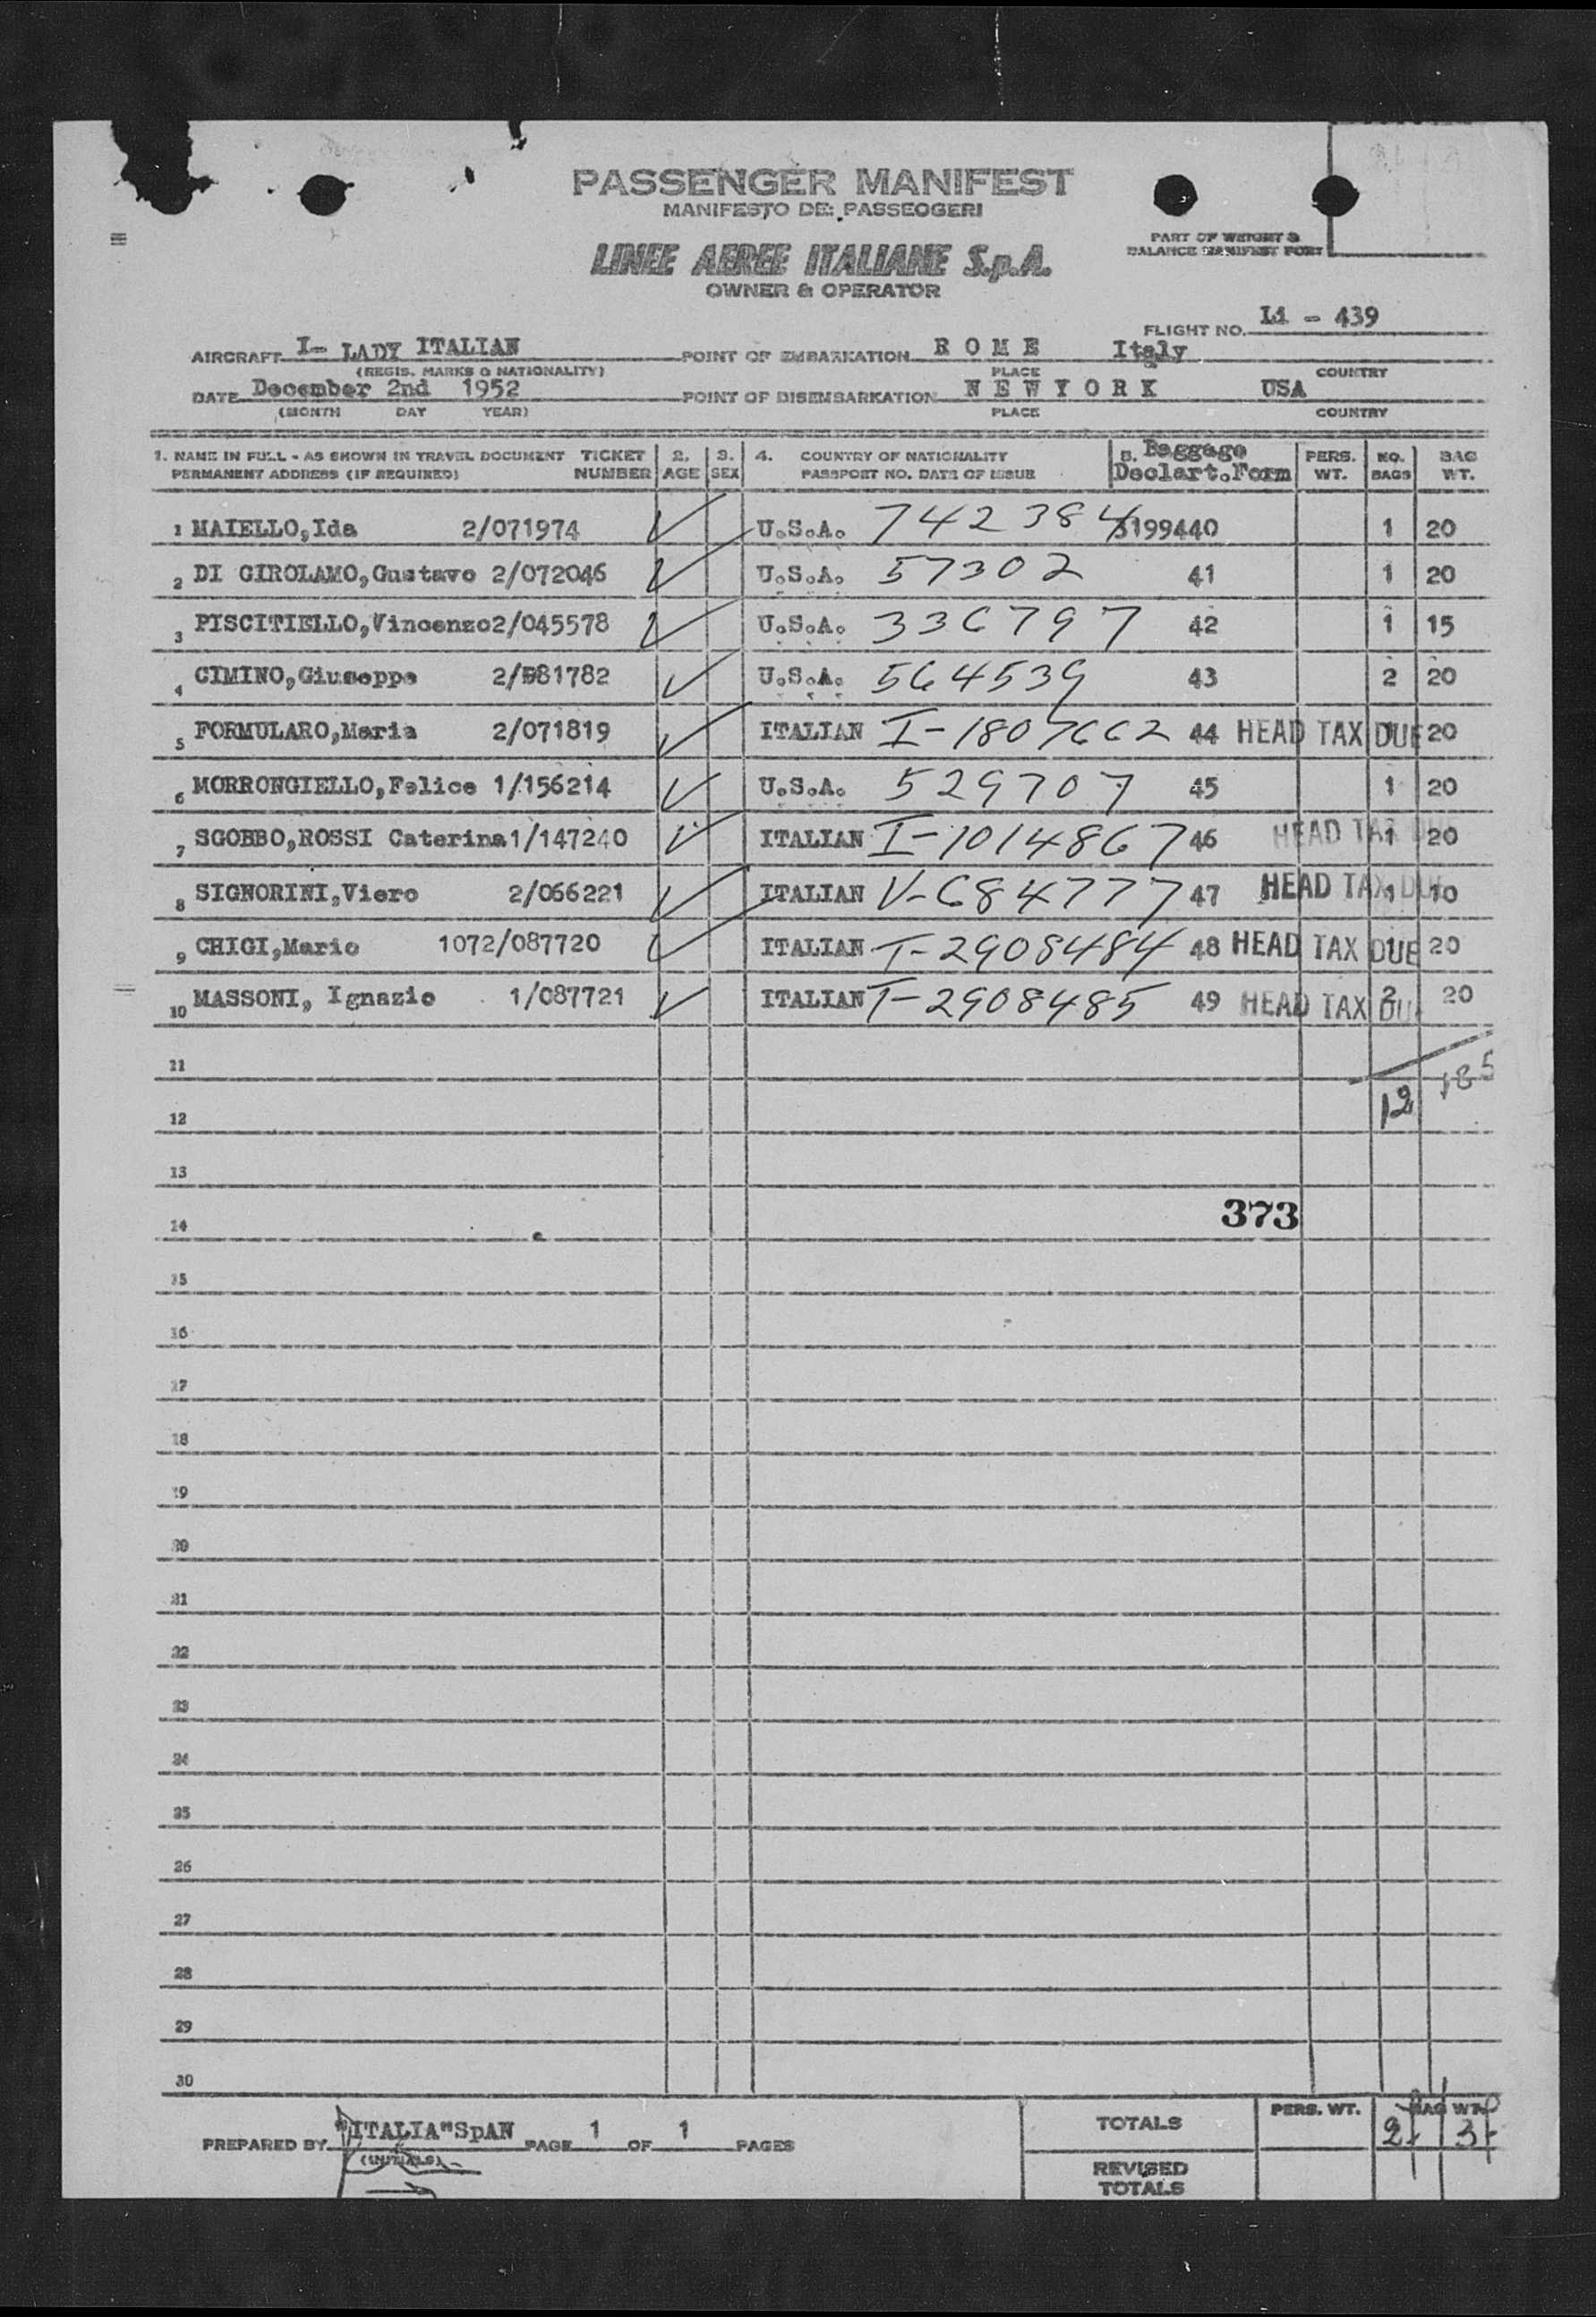 PASSENGER MANIFEST
MANIFESTO DEI PASSEGGERI
LINEE AEREE ITALIANE S.p.A.
OWNER & OPERATOR
PART OF WEIGHT &
BALANCE MANIFEST FORT
FLIGHT NO. Li - 439
AIRCRAFT I- LADY ITALIAN POINT OF EMBARKATION R O M E Italy
(REGIS. MARKS & NATIONALITY) PLACE COUNTRY
DATE December 2nd 1952 POINT OF DISEMBARKATION N E W Y O R K USA
(MONTH DAY YEAR) PLACE COUNTRY
1. NAME IN FULL - AS SHOWN IN TRAVEL DOCUMENT TICKET 2. 3. 4. COUNTRY OF NATIONALITY 5. Baggage PERS. NO. BAG
PERMANENT ADDRESS (IF REQUIRED) NUMBER AGE SEX PASSPORT NO. DATE OF ISSUE Declart.Form WT. BAGS WT.
1 MAIELLO,Ida 2/071974 U.S.A. 742384 3199440 1 20
2 DI GIROLAMO,Gustavo 2/072046 U.S.A. 57302 41 1 20
3 PISCITIELLO,Vincenzo2/045578 U.S.A. 336797 42 1 15
4 CIMINO,Giuseppe 2/981782 U.S.A. 564539 43 2 20
5 FORMULARO,Maria 2/071819 ITALIAN I-1807662 44 HEAD TAX DUE 20
6 MORRONGIELLO,Felice 1/156214 U.S.A. 529707 45 1 20
7 SGOBBO,ROSSI Caterina1/147240 ITALIAN I-1014867 46 HEAD TAX DUE 1 20
8 SIGNORINI,Viero 2/066221 ITALIAN V-684777 47 HEAD TAX DUE 1 10
9 CHIGI,Mario 1072/087720 ITALIAN I-2908484 48 HEAD TAX DUE 20
10 MASSONI, Ignazio 1/087721 ITALIAN I-2908485 49 HEAD TAX DUE 2 20
11
185
12 12
13
14 373
15
16
17
18
19
20
21
22
23
24
25
26
27
28
29
30
PREPARED BY "ITALIA"SpAN PAGE 1 OF 1 PAGES
(INITIALS)
TOTALS PERS. WT. BAG WT.
REVISED
TOTALS